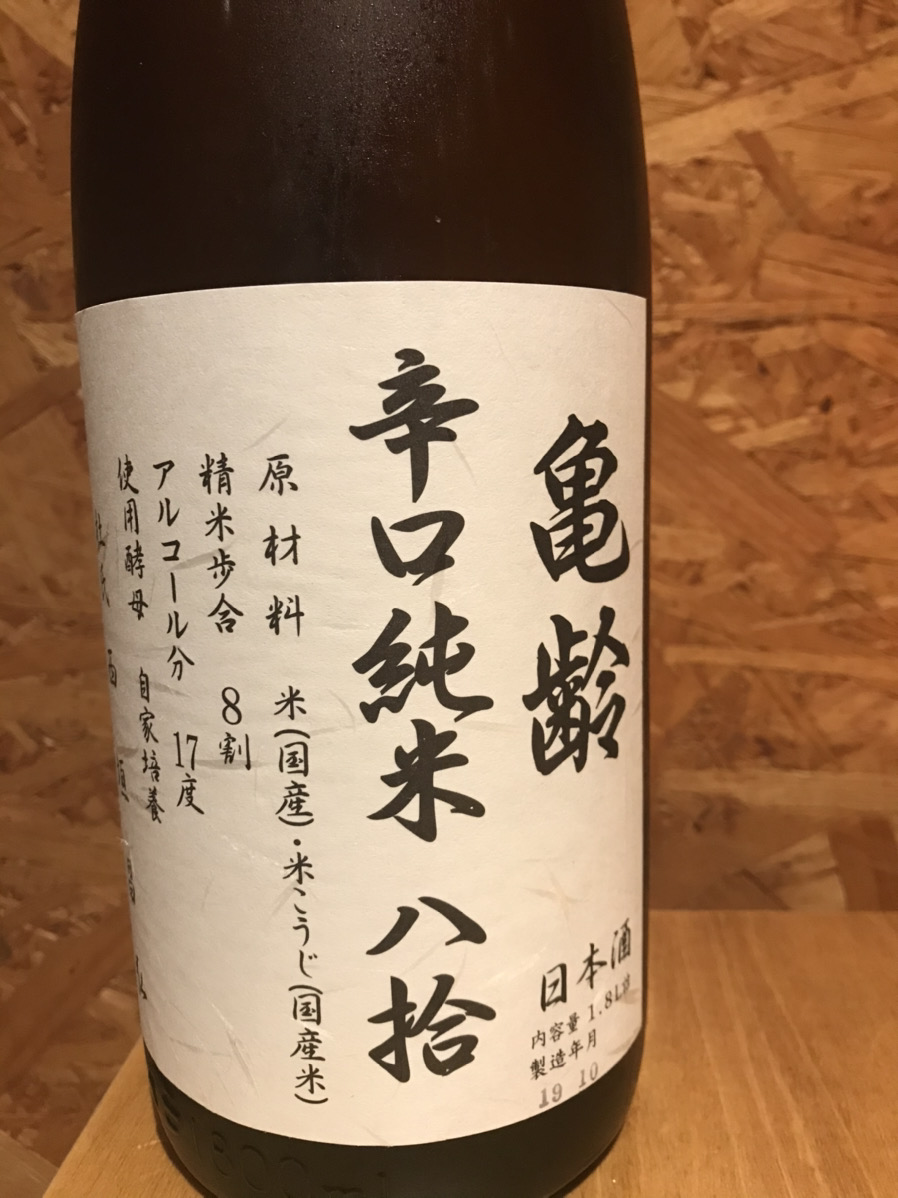 亀齢
日本酒
内容量 1.8L詰
製造年月
19 10
辛口純米 八拾
原材料 米(国産)・米こうじ(国産米)
精米歩合 8割
アルコール分 17度
使用酵母 自家培養